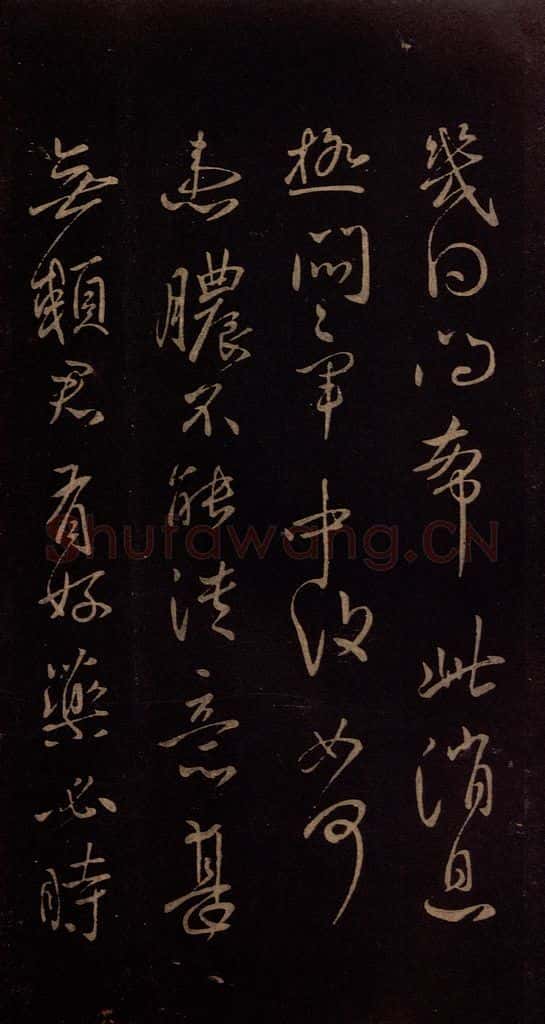 幾日此消息
極悶〻軍中如何
患膿不能潰意甚
無賴君有好藥必時
Shufawang.CN